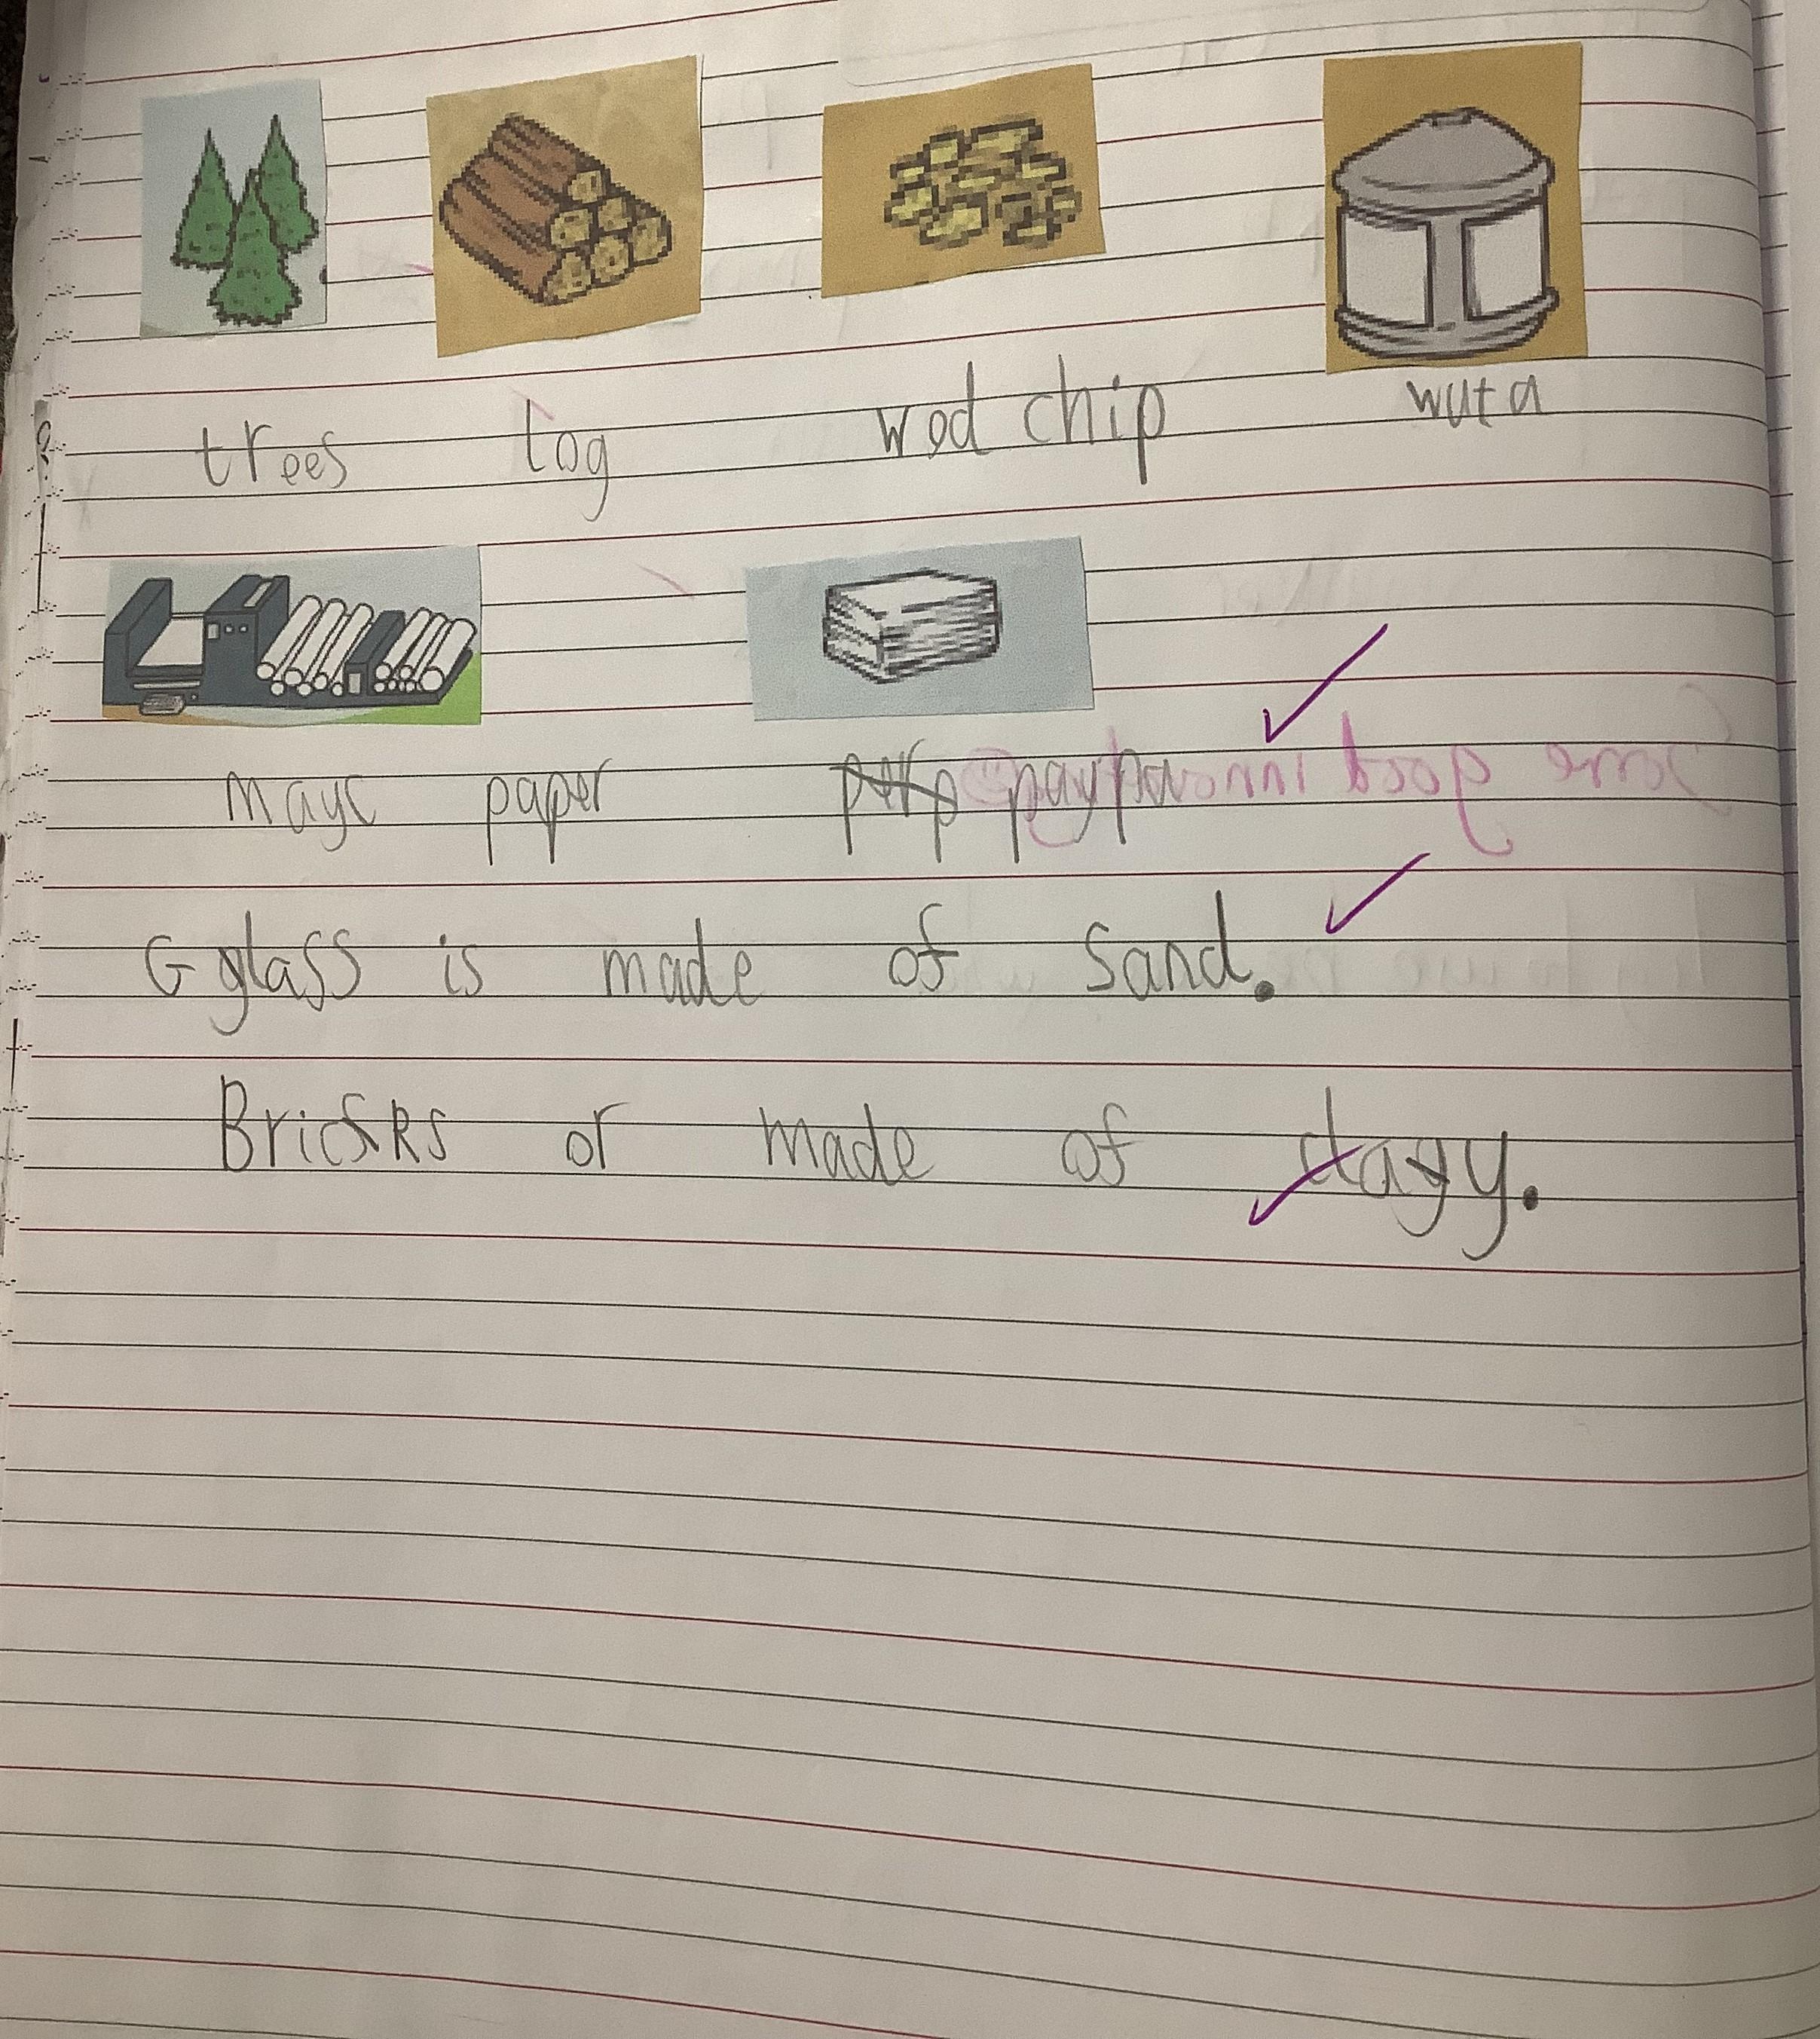 trees log wod chip wuta
mayc paper paypa
G glass is made of Sand.
Bricks or made of clayy.